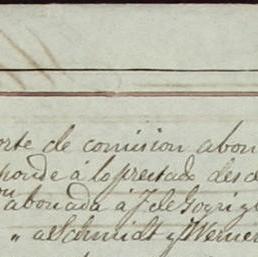 orte de comision abon
ponde á lo prestado desd
abonada á J. de Goyri y
" a Schmidt y Werner